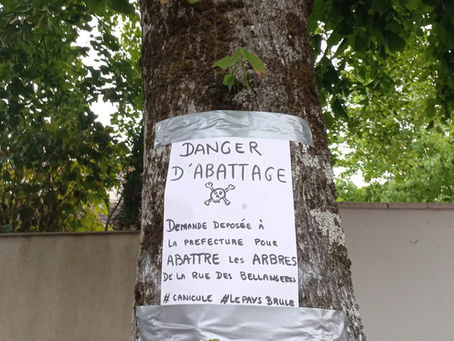 DANGER
D'ABATTAGE
DEMANDE DEPOSÉE À
LA PREFECTURE POUR
ABATTRE LES ARBRES
DE LA RUE DES BELLANGERES
# CANICULE #LE PAYS BRULE